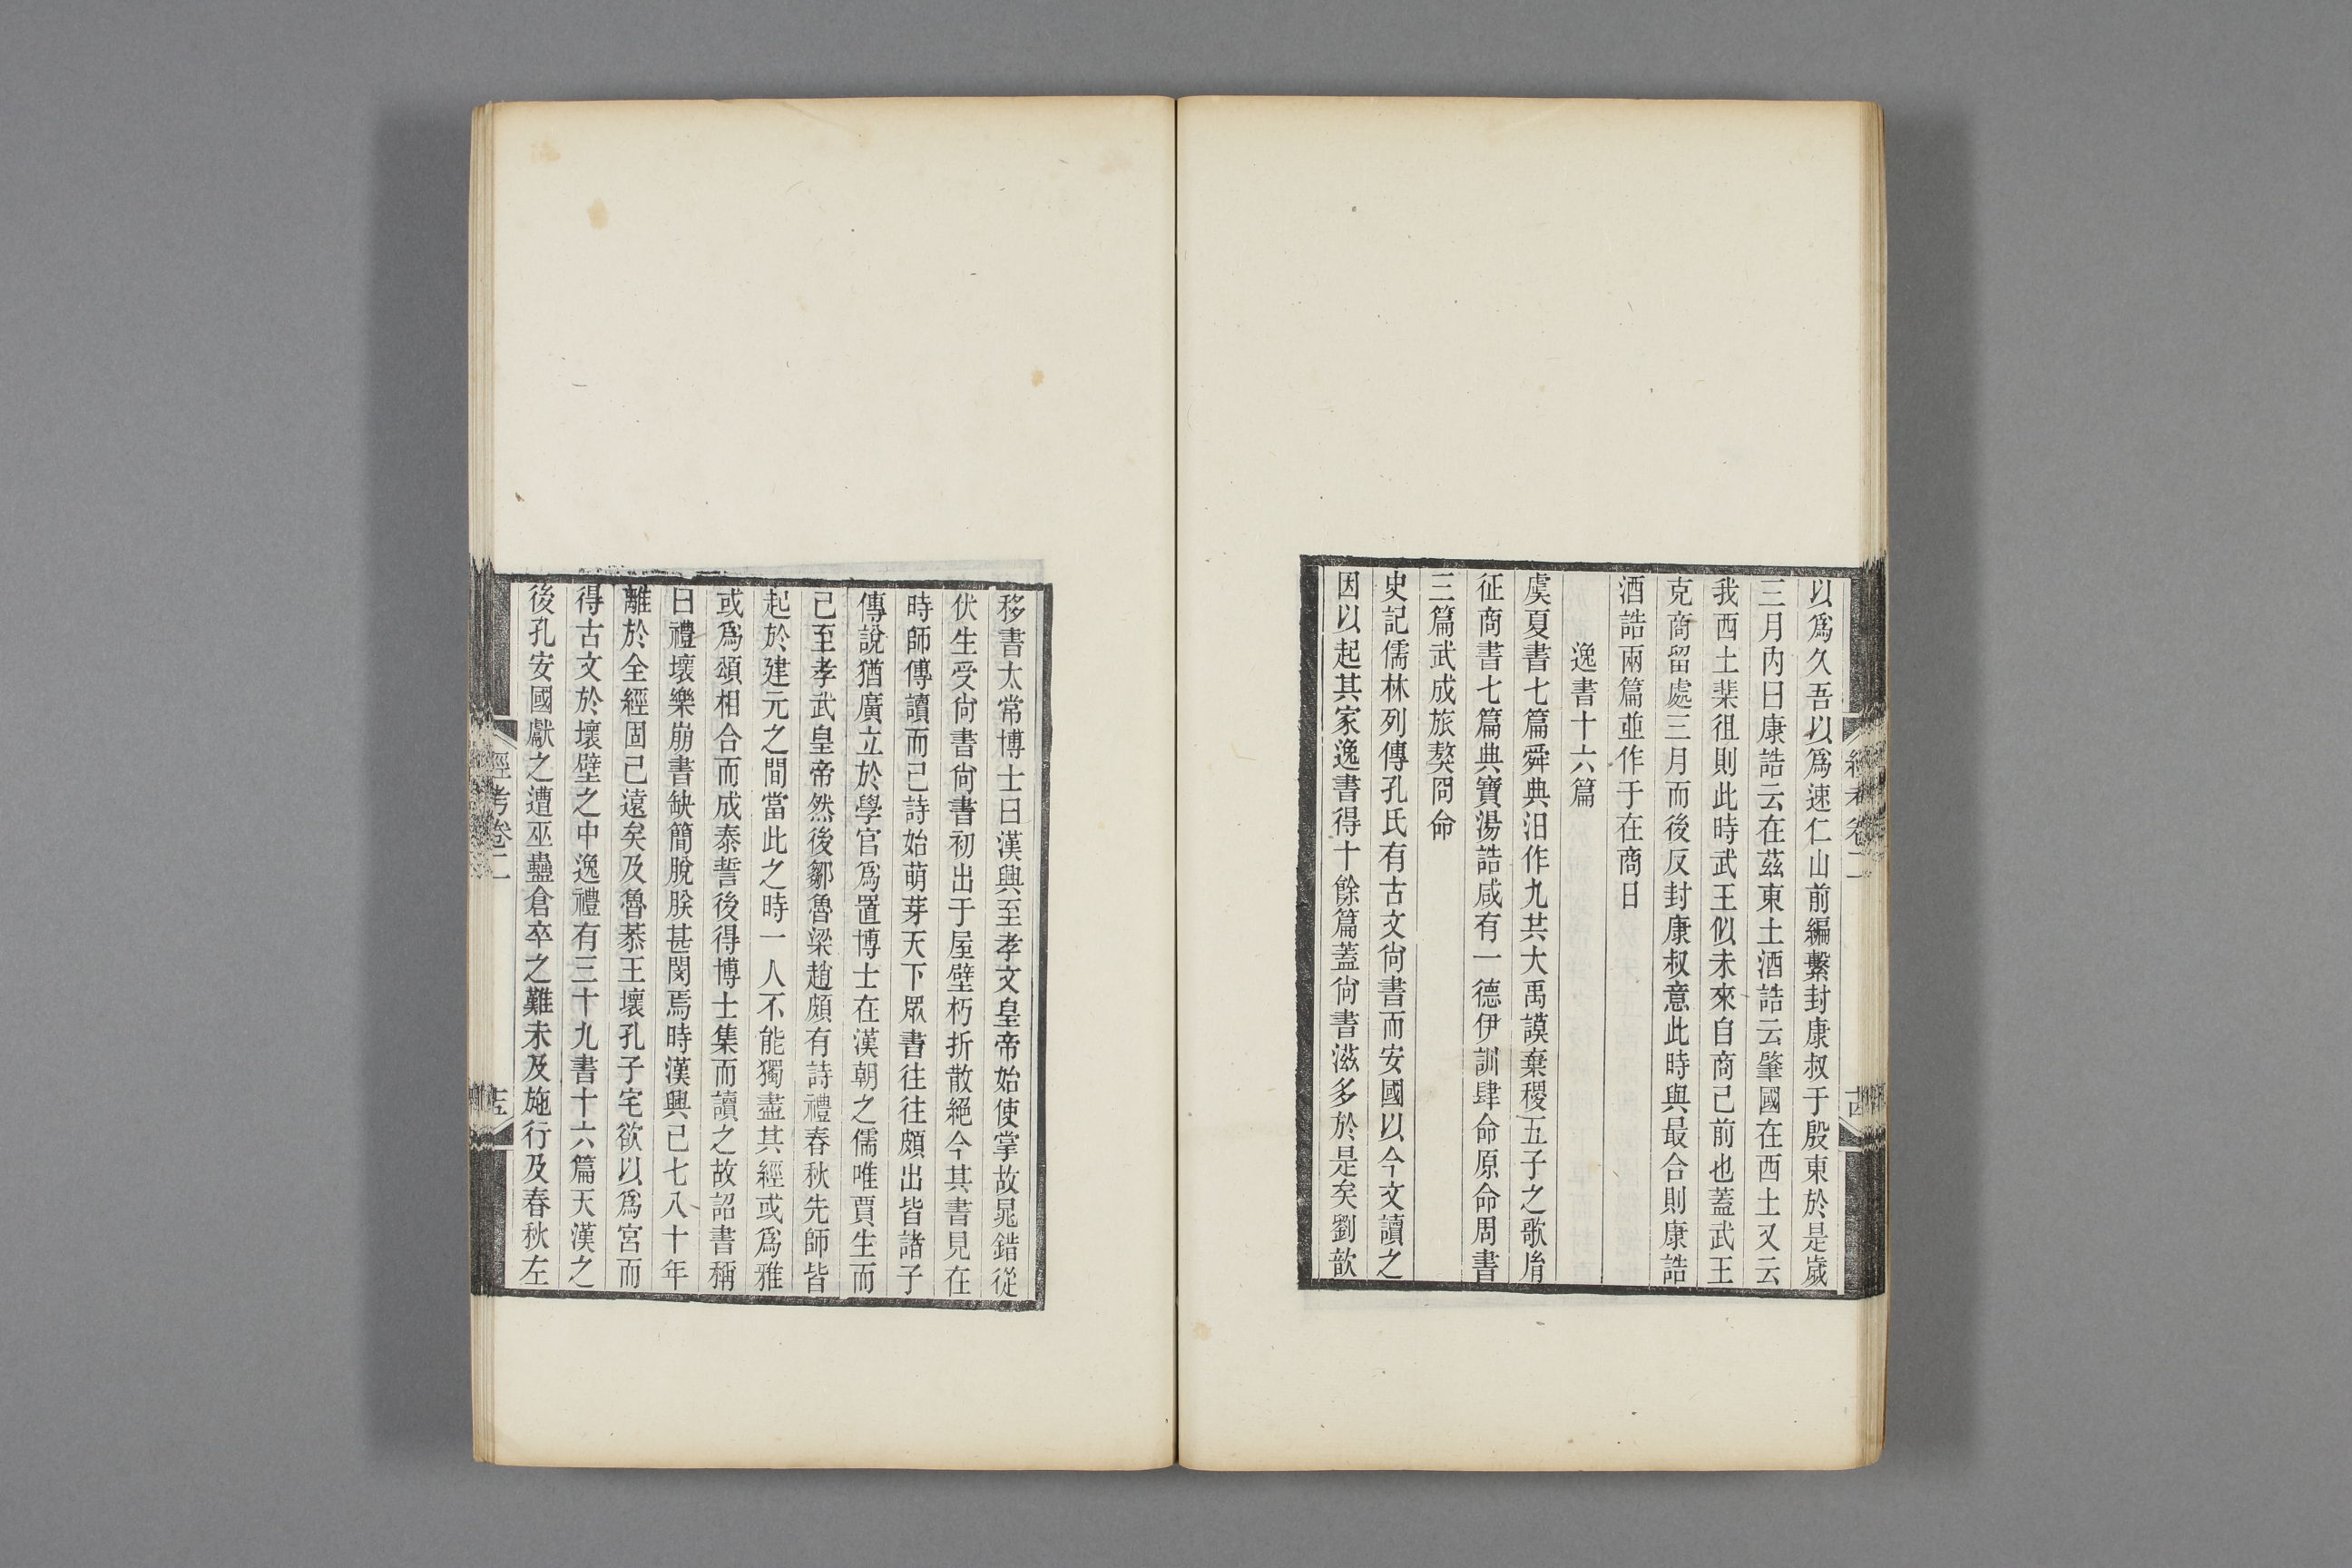 以爲久吾以爲速仁山前編繫封康叔于殷東於是歲
三月內曰康誥云在茲東土酒誥云肇國在西土又云
我西土棐徂則此時武王似未來自商已前也蓋武王
克商留處三月而後反封康叔意此時與最合則康誥
酒誥兩篇並作于在商日
逸書十六篇
虞夏書七篇舜典汨作九共大禹謨棄稷五子之歌胤
征商書七篇典寶湯誥咸有一德伊訓肆命原命周書
三篇武成旅獒冏命
史記儒林列傳孔氏有古文尙書而安國以今文讀之
因以起其家逸書得十餘篇蓋尙書滋多於是矣劉歆
經考卷二
古
移書太常博士曰漢興至孝文皇帝始使掌故晁錯從
伏生受尙書尙書初出于屋壁朽折散絕今其書見在
時師傳讀而已詩始萌芽天下眾書往往頗出皆諸子
傳說猶廣立於學官爲置博士在漢朝之儒唯賈生而
已至孝武皇帝然後鄒魯梁趙頗有詩禮春秋先師皆
起於建元之間當此之時一人不能獨盡其經或爲雅
或爲頌相合而成泰誓後得博士集而讀之故詔書稱
曰禮壞樂崩書缺簡脫朕甚閔焉時漢興已七八十年
離於全經固已遠矣及魯恭王壞孔子宅欲以爲宮而
得古文於壞壁之中逸禮有三十九書十六篇天漢之
後孔安國獻之遭巫蠱倉卒之難未及施行及春秋左
經考卷二